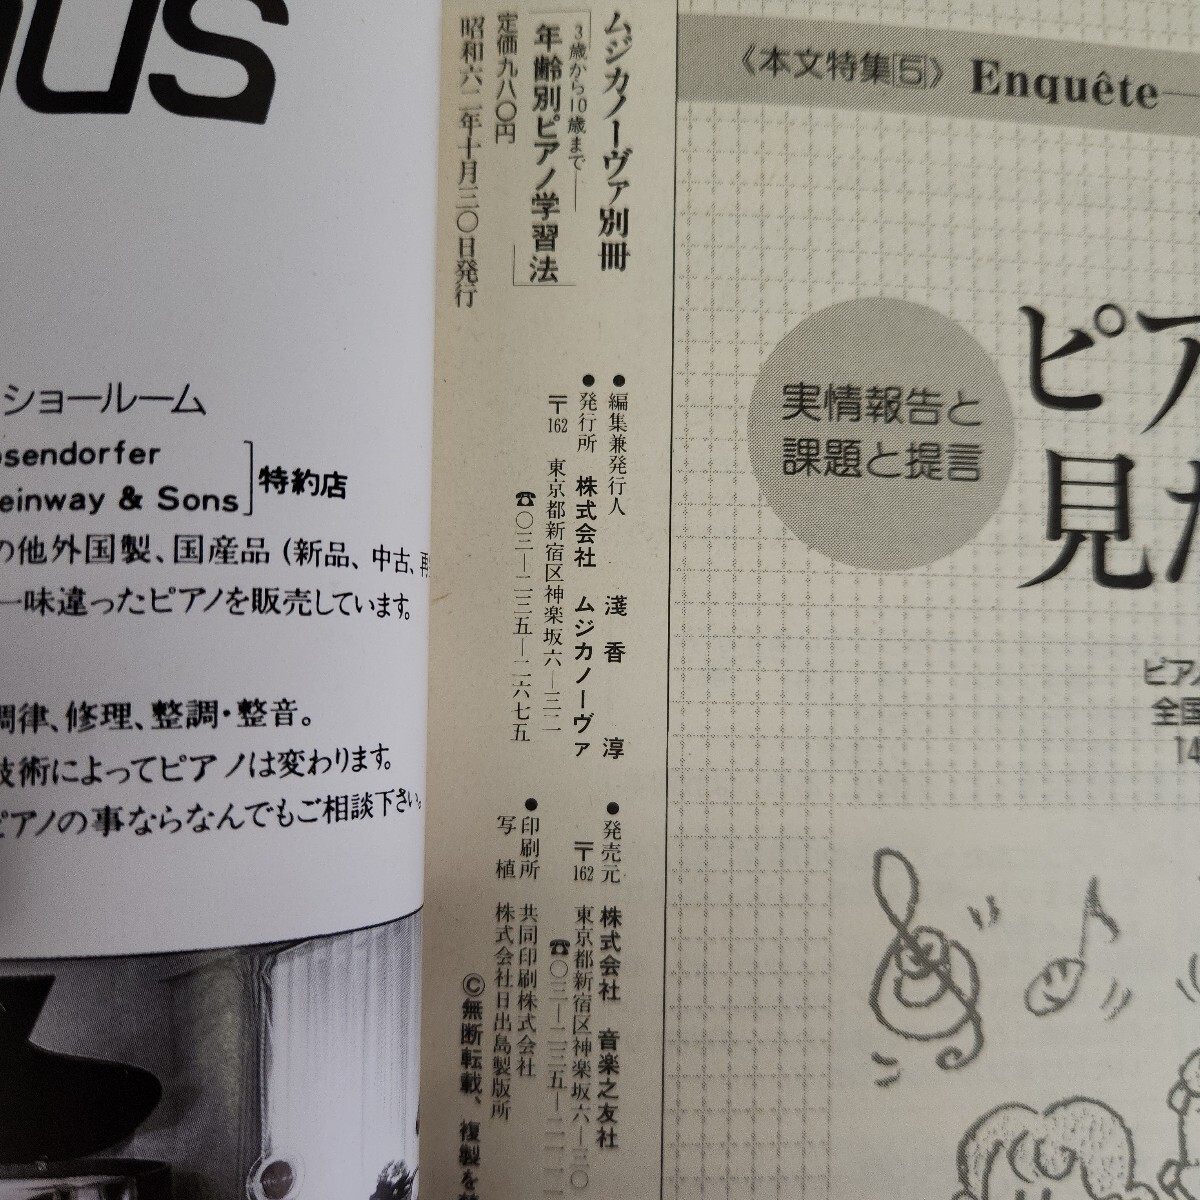 ショールーム
sendorfer
einway & Sons
特約店
の他外国製、国産品(新品、中古、
一味違ったピアノを販売しています。
調律、修理、整調・整音。
技術によってピアノは変わります。
ピアノの事ならなんでもご相談下さい。
ムジカノーヴァ別冊
3歳から10歳まで——
「年齢別ピアノ学習法」
定価九八〇円
昭和六二年十月三〇日発行
●編集兼発行人 淺香 淳
●発行所 株式会社 ムジカノーヴァ
〒162 東京都新宿区神楽坂六—三二
☎〇三—二三五—二六七五
●発売元 株式会社 音楽之友社
〒162 東京都新宿区神楽坂六—三〇
☎〇三—二三五—二一一
●印刷所 共同印刷株式会社
写植 株式会社日出島製版所
©無断転載、複製を
《本文特集5》 Enquête—
実情報告と
課題と提言
ピア
見た
ピアノ
全国
14